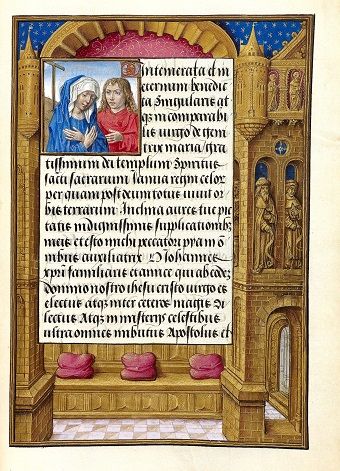 O Intemerata et in
eternum benedic
ta singularis at
qz incomparabi
lis virgo dei gen
trix maria gra
tissimum dei templum Spiritus
sacti sacrarium Ianua regni celor
per quam post deum totus vivit or
bis terrarum. Inclina aures tue pie
tatis indignissimis supplicationibz
meis et esto michi peccatori pia in o
mnibus auxiliatrix O Iohannes
xpi familiaris et amice qui ab eodez
domino nostro ihesu cristo virgo es
electus atqz inter ceteros magis di
lectus Atqz in misterijs celestibus
ultra omnes imbutus Apostolus et